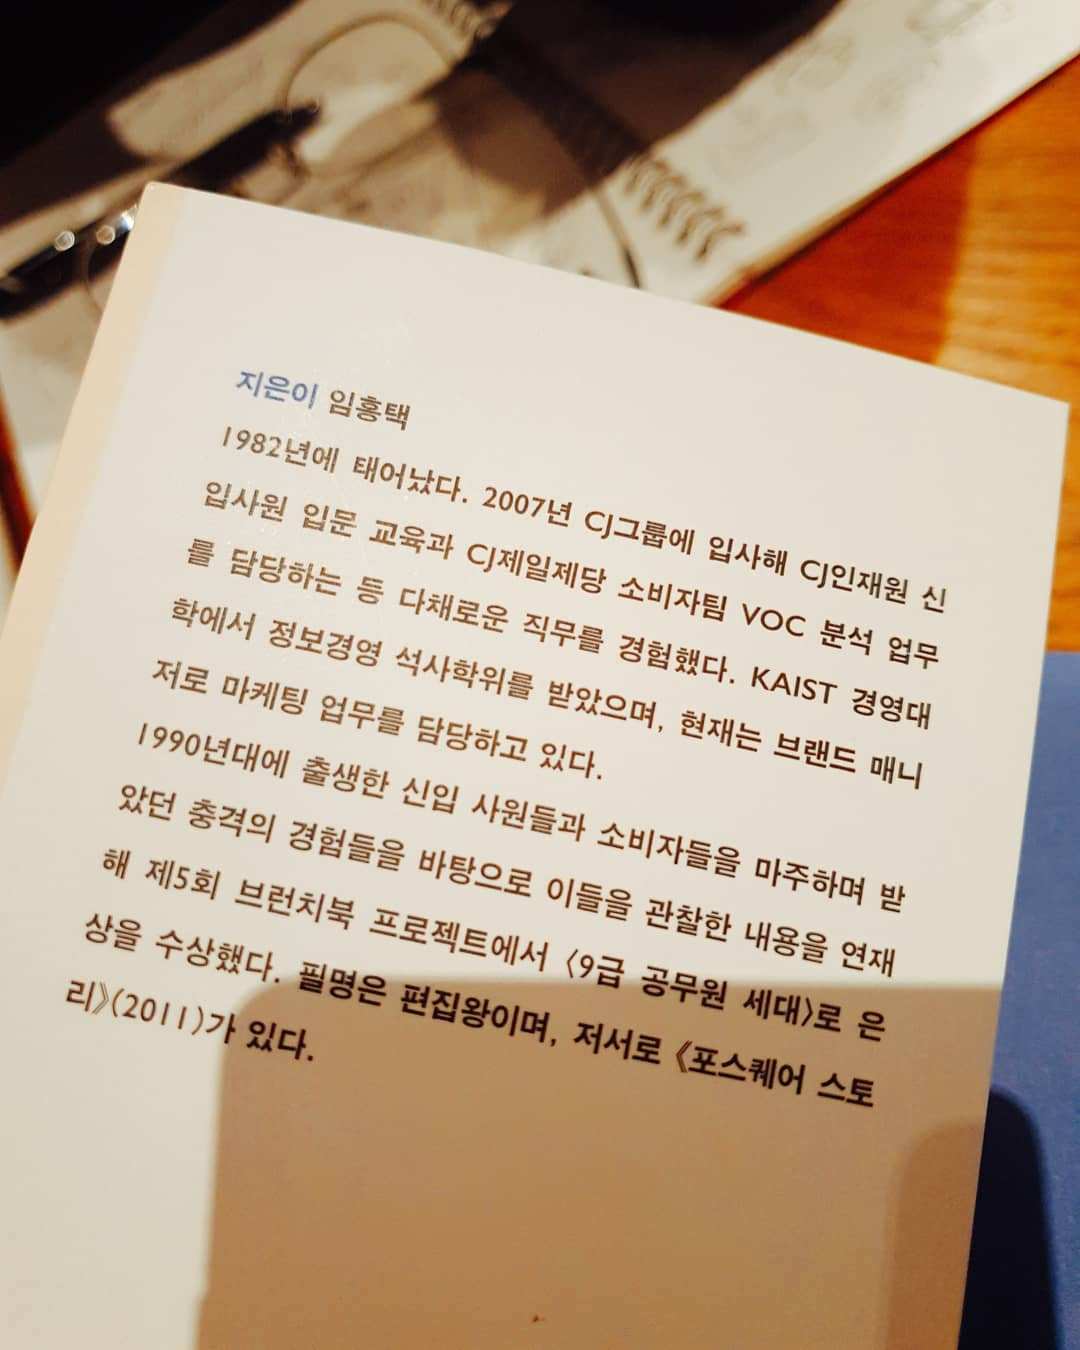 지은이 임홍택
1982년에 태어났다. 2007년 CJ그룹에 입사해 CJ인재원 신
입사원 입문 교육과 CJ제일제당 소비자팀 VOC 분석 업무
를 담당하는 등 다채로운 직무를 경험했다. KAIST 경영대
학에서 정보경영 석사학위를 받았으며, 현재는 브랜드 매니
저로 마케팅 업무를 담당하고 있다.
1990년대에 출생한 신입 사원들과 소비자들을 마주하며 받
았던 충격의 경험들을 바탕으로 이들을 관찰한 내용을 연재
해 제5회 브런치북 프로젝트에서 〈9급 공무원 세대〉로 은
상을 수상했다. 필명은 편집왕이며, 저서로 《포스퀘어 스토
리》(2011)가 있다.